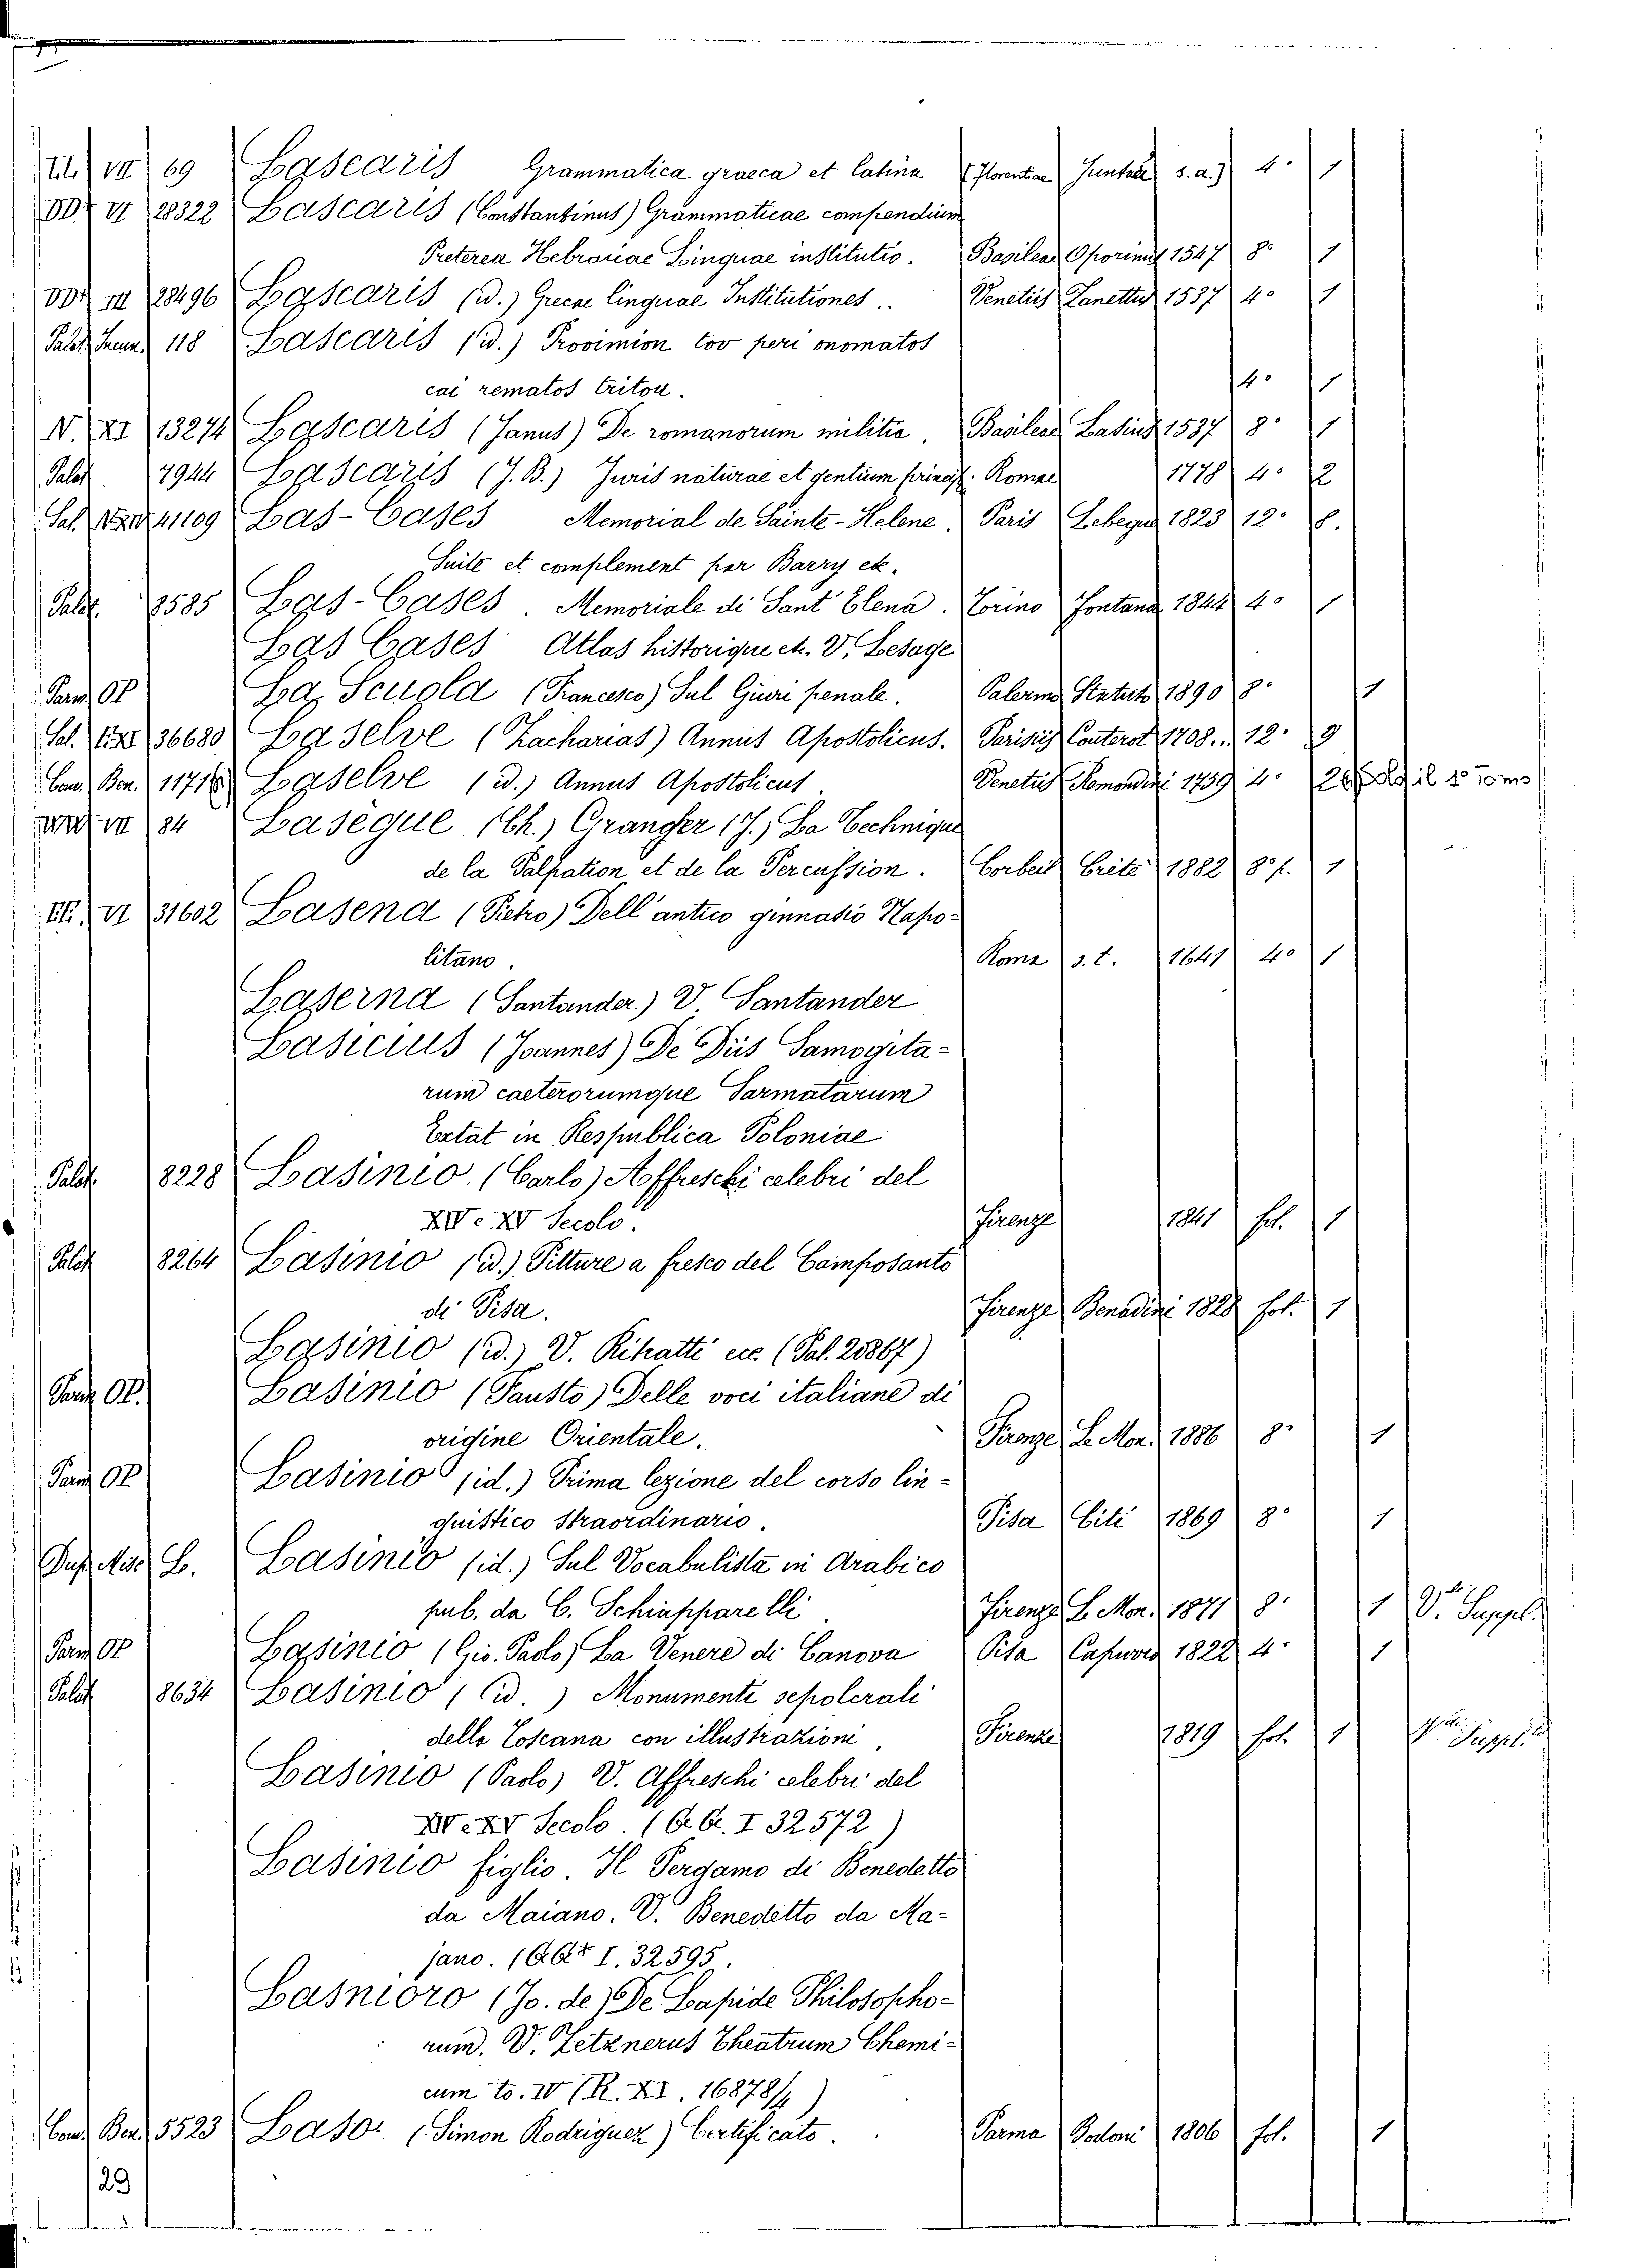 VII 69 Lascaris Grammatica graeca et latina (Florentiae Juntae s. a.) 4° 1
DD² VI 28322 Lascaris (Constantinus) Grammaticae compendium
Preterea Hebraicae Linguae institutio. Basileae Oporinus 1547 8° 1
DD² III 28496 Lascaris (id.) Grecae linguae Institutiones.. Venetiis Zanettus 1537 4° 1
Palat. Incun. 118 Lascaris (id.) Provimion tov peri onomatos
cai rematos tritou. 4° 1
N. XI 13274 Lascaris (Janus) De romanorum militia. Basileae Lasius 1537 8° 1
Palat. 7944 Lascaris (J. B.) Juris naturae et gentium princip. Romae 1778 4° 2
Sal. 41109 Las-Cases Memorial de Sainte-Helene. Paris Lebegue 1823 12° 8.
Suite et complement par Barry etc.
Palat. 8585 Las-Cases. Memoriale di Sant' Elena. Torino Fontana 1844 4° 1
Las Cases Atlas historique etc. V. Lesage
Parm OP La Scuola (Francesco) Sul Giuri penale. Palermo Statuto 1890 8° 1
Sal. 36680 Laselve (Zacharias) Annus Apostolicus. Parisiis Couterot 1708.. 12° 9
Com. Ben. 11716 Laselve (id.) Annus Apostolicus. Venetiis Remondini 1759 4° 2 il 1° Tomo
VII 84 Lasègue (Ch.) Grancher (J.) La Technique
de la Palpation et de la Percussion. Corbeil Crété 1882 8° p. 1
VI 31602 Lasena (Pietro) Dell' antico ginnasio Napo-
litano. Roma s. t. 1641 4° 1
Laserna (Santander) V. Santander
Lasicius (Joannes) De Diis Samogita-
rum caeterorumque Sarmatarum
Extat in Respublica Poloniae
Palat. 8228 Lasinio. (Carlo) Affreschi celebri del
XIV e XV Secolo. Firenze 1841 fol. 1
Palat 8264 Lasinio (id.) Pitture a fresco del Camposanto
di Pisa. Firenze Benadini 1828 fol. 1
Lasinio (id.) V. Ritratti ecc. (Pal. 20867)
Parm OP. Lasinio (Fausto) Delle voci italiane di
origine Orientale. Firenze Le Mon. 1886 8° 1
Parm OP Lasinio (id.) Prima lezione del corso lin-
guistico Straordinario. Pisa Citi 1869 8° 1
Dup. Misc. L. Lasinio (id.) Sul Vocabulista in Arabico
pub. da C. Schiapparelli Firenze Le Mon. 1871 8° 1 V. Suppl.
Parm OP Lasinio (Gio. Paolo) La Venere di Canova Pisa Capurro 1822 4° 1
Palat 8634 Lasinio (id.) Monumenti sepolcrali
della Toscana con illustrazioni. Firenze 1819 fol. 1 V. Suppl.
Lasinio (Paolo) V. Affreschi celebri del
XIV e XV Secolo. (G. G. I 32572)
Lasinio figlio. Il Pergamo di Benedetto
da Maiano. V. Benedetto da Ma-
jano. (G G* I. 32595.
Lasnioro (Jo. de) De Lapide Philosopho-
rum. V. Zetznerus Theatrum Chemi-
cum to. IV (R. XI. 16878/4)
Com. Ben. 5523 Laso. (Simon Rodriguez) Certificato. Parma Bodoni 1806 fol. 1
29